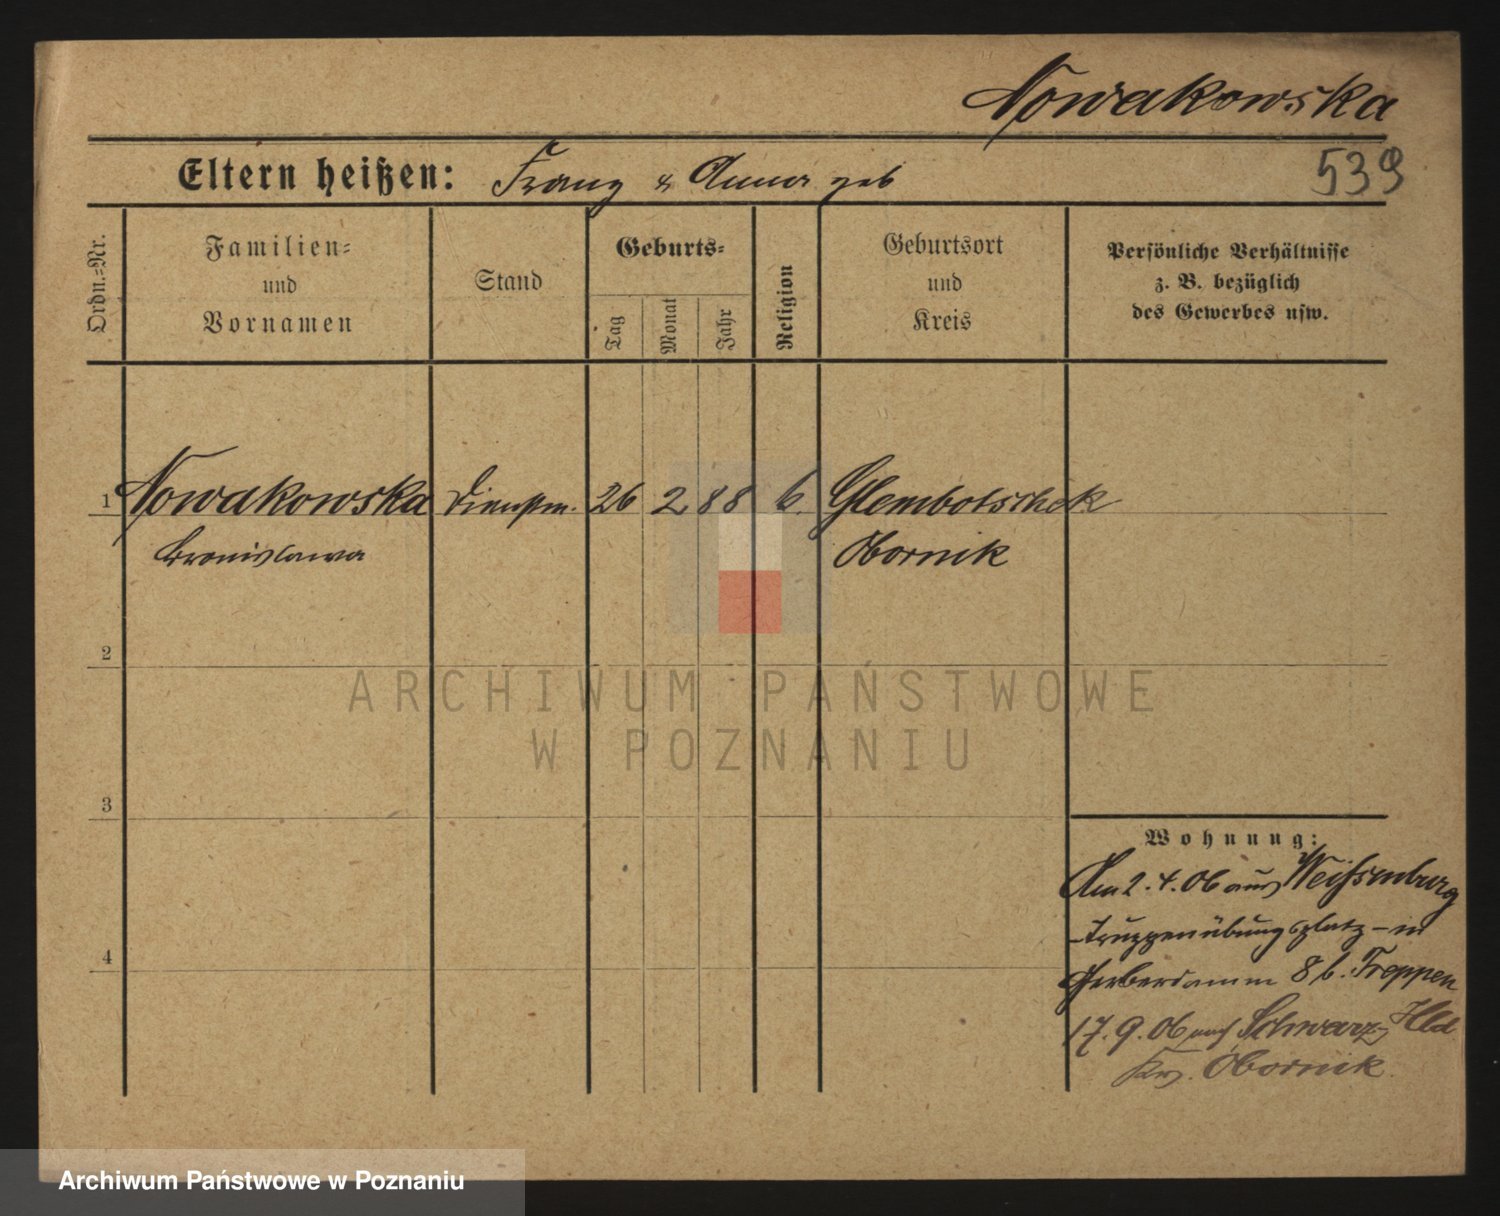 Nowakowska
539
Eltern heißen: Franz & Anna geb
Ordn.=Nr.
Familien=
und
Vornamen
Stand
Geburts=
Tag
Monat
Jahr
Religion
Geburtsort
und
Kreis
Persönliche Verhältnisse
z. B. bezüglich
des Gewerbes usw.
1 Nowakowska Dienstm. 26 2 88 k. Glembotschek
Bronislawa Obornik
2
3
4
Wohnung:
Am 2.4.06 aus Weißenburg
-Truppenübungsplatz- in
Gerberdamm 8 b. Treppen
17.9.06 nach Schwarz Hld
Krs. Obornik.
ARCHIWUM PAŃSTWOWE
W POZNANIU
Archiwum Państwowe w Poznaniu